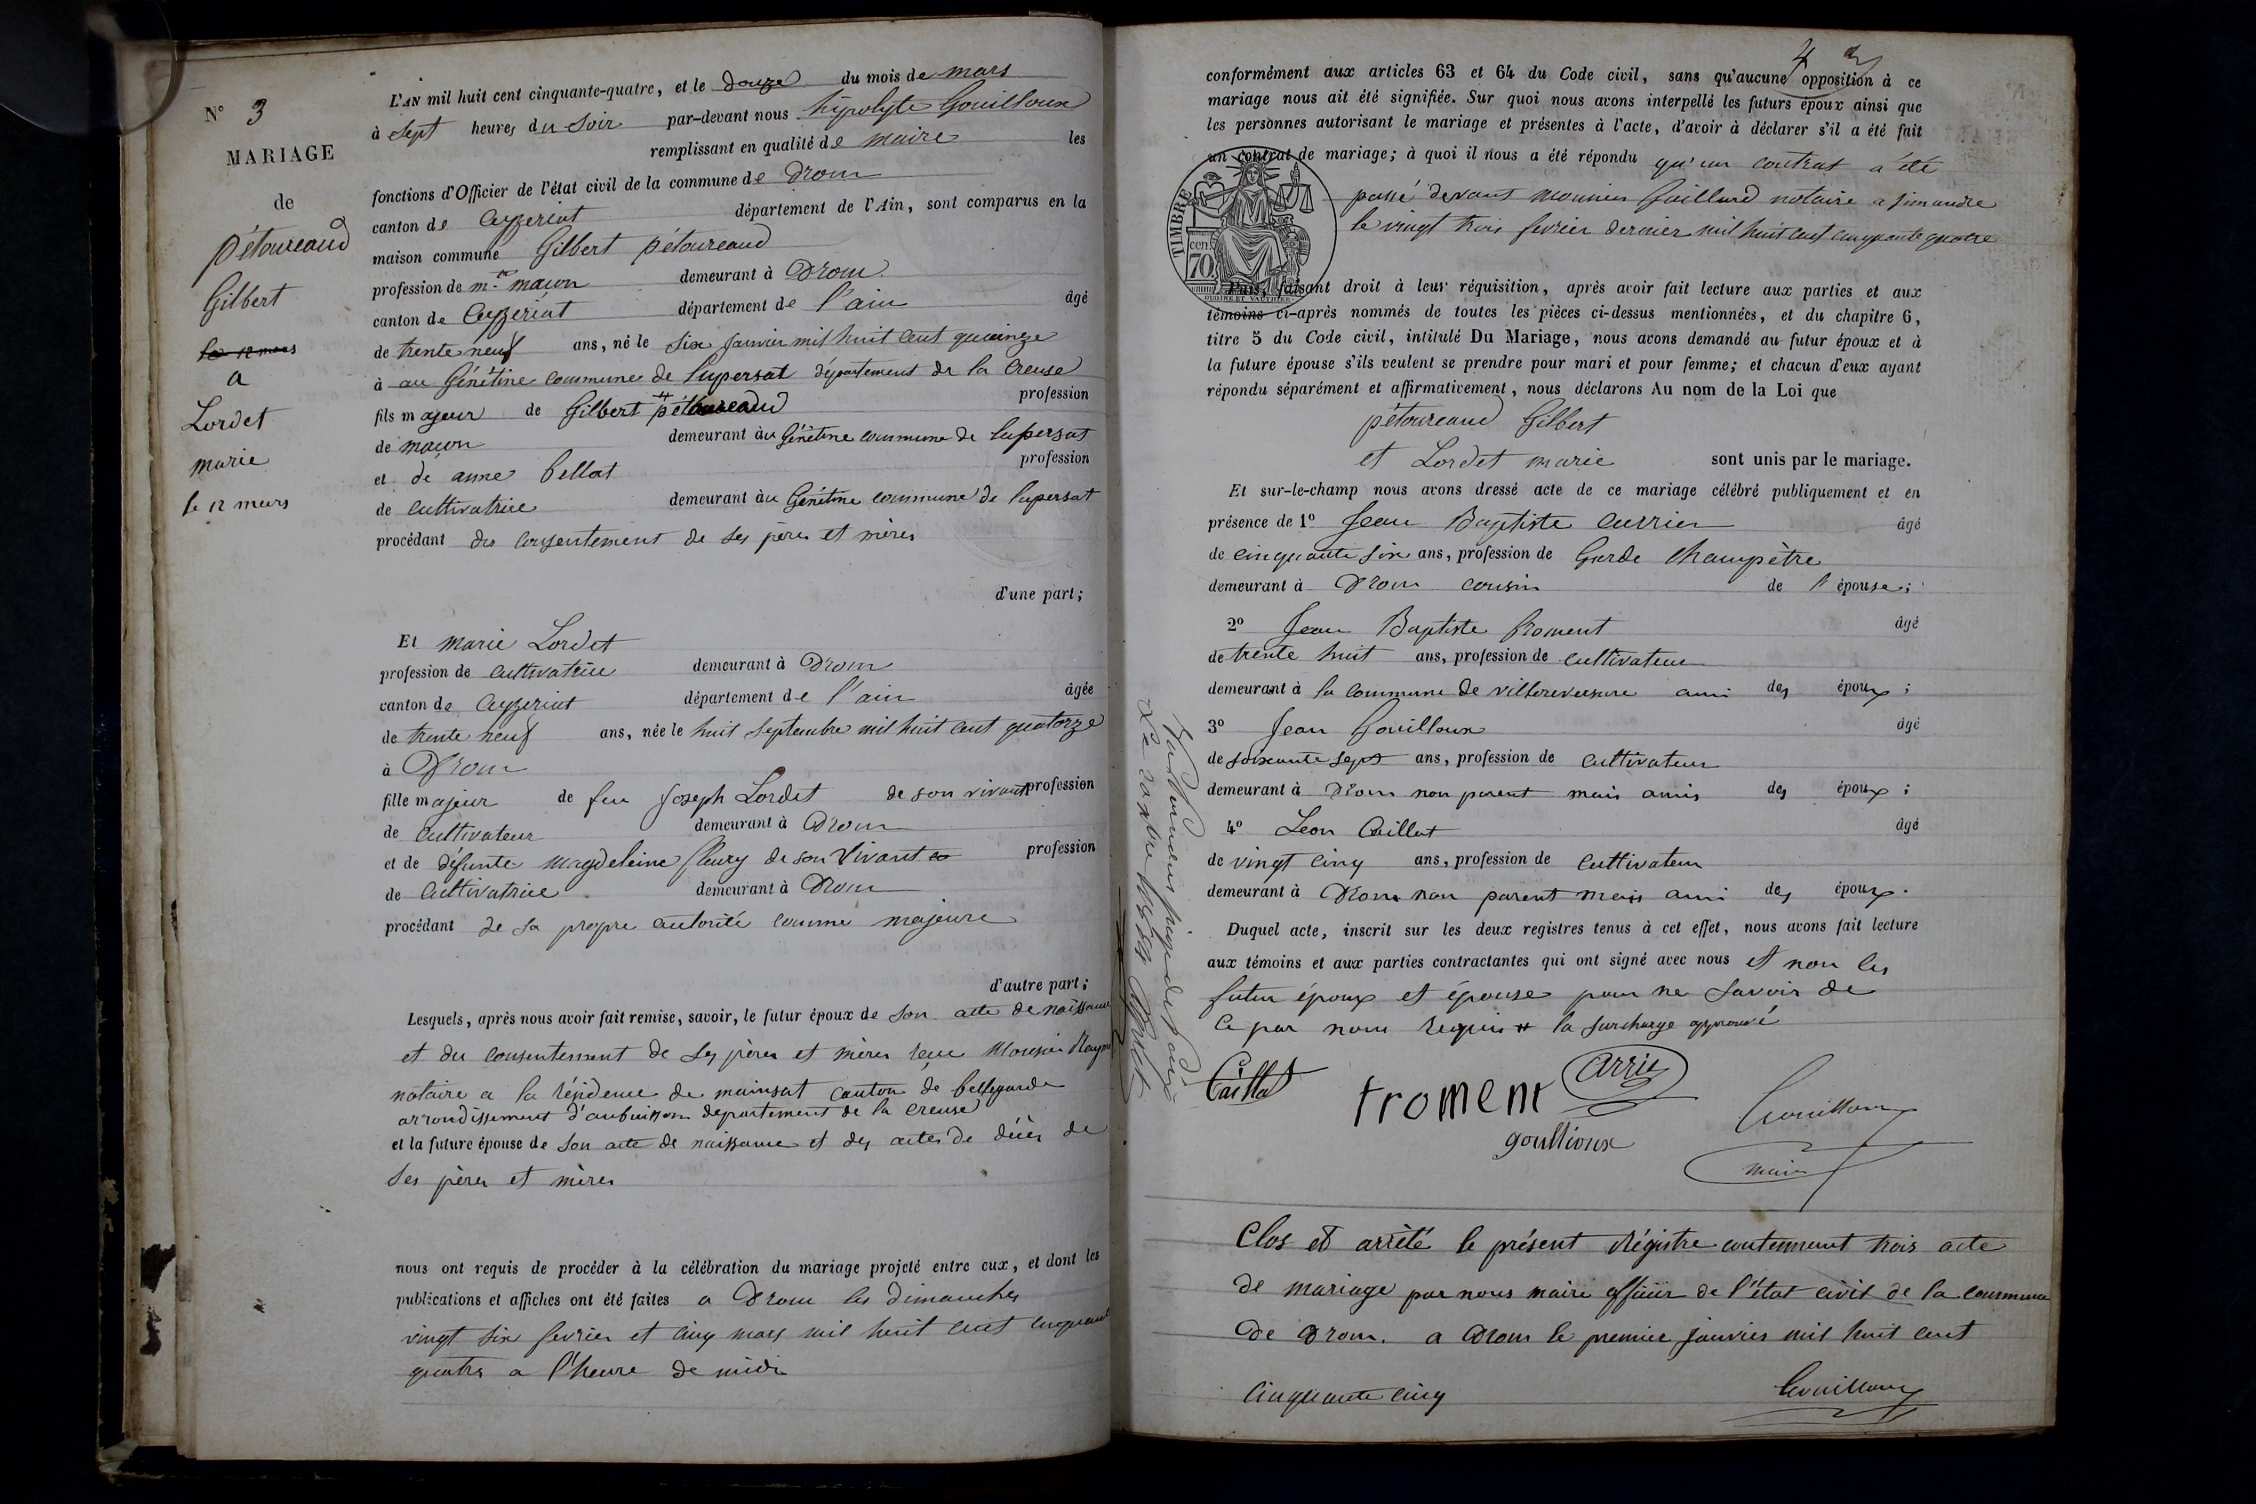 N° 3
MARIAGE
de
pétoureaud
Gilbert
le 12 mars
a
Lordet
marie
le 12 mars
L'AN mil huit cent cinquante-quatre, et le douze du mois de mars
à sept heures du soir par-devant nous hypolyte Gouilloux
remplissant en qualité de maire les
fonctions d'Officier de l'état civil de la commune de Drom
canton de Ceyzeriat département de l'Ain, sont comparus en la
maison commune Gilbert pétoureaud
profession de m.re macon demeurant à Drom
canton de Ceyzériat département de l'ain âgé
de trente neuf ans, né le six janvier mil huit cent quinze
à au Génétine commune de lupersat département de la Creuse
fils majeur de Gilbert # pétoureaud profession
de macon demeurant àu Génétine commune de lupersat
et de anne bellat profession
de cultivatrice demeurant àu Génétine commune de lupersat
procédant du consentement de ses pères et mères
d'une part;
Et marie Lordet
profession de cultivatrice demeurant à Drom
canton de Ceyzeriat département de l'ain âgée
de trente neuf ans, née le huit septembre mil huit cent quatorze
à Drom
fille majeur de feu Joseph Lordet de son vivant profession
de cultivateur demeurant à Drom
et de défunte magdeleine fleury de son vivant profession
de cultivatrice demeurant à Drom
procédant de sa propre autorité comme majeure
d'autre part;
Lesquels, après nous avoir fait remise, savoir, le futur époux de son acte de naissance
et du consentement de ses pères et mères reçu
notaire a la résidence de mainsat canton de bellegarde
arrondissement d'aubuisson departement de la creuse
et la future épouse de son acte de naissance et des actes de décès de
ses pères et mères
nous ont requis de procéder à la célébration du mariage projeté entre eux, et dont les
publications et affiches ont été faites a Drom les dimanches
vingt six fevrier et cinq mars mil huit cent cinquante
quatre a l'heure de midi
conformément aux articles 63 et 64 du Code civil, sans qu'aucune opposition à ce
mariage nous ait été signifiée. Sur quoi nous avons interpellé les futurs époux ainsi que
les personnes autorisant le mariage et présentes à l'acte, d'avoir à déclarer s'il a été fait
un contrat de mariage; à quoi il nous a été répondu qu'un contrat a été
passé devant monsieur Gaillard notaire a simandre
le vingt trois fevrier dernier mil huit cent cinquante quatre
TIMBRE
cen
70
Puis, faisant droit à leur réquisition, après avoir fait lecture aux parties et aux
témoins ci-après nommés de toutes les pièces ci-dessus mentionnées, et du chapitre 6,
titre 5 du Code civil, intitulé Du Mariage, nous avons demandé au futur époux et à
la future épouse s'ils veulent se prendre pour mari et pour femme; et chacun d'eux ayant
répondu séparément et affirmativement, nous déclarons Au nom de la Loi que
pétoureaud Gilbert
et Lordet marie sont unis par le mariage.
Et sur-le-champ nous avons dressé acte de ce mariage célébré publiquement et en
présence de 1° Jean Baptiste Currier âgé
de cinquante six ans, profession de Garde champètre
demeurant à Drom cousin de l'épouse;
2° Jean Baptiste froment âgé
de trente huit ans, profession de cultivateur
demeurant à la commune de villereversure ami des époux;
3° Jean Gouilloux âgé
de soixante sept ans, profession de cultivateur
demeurant à Drom non parent mais amis des époux;
4° Leon Caillat âgé
de vingt cinq ans, profession de cultivateur
demeurant à Drom non parent mais ami des époux.
Duquel acte, inscrit sur les deux registres tenus à cet effet, nous avons fait lecture
aux témoins et aux parties contractantes qui ont signé avec nous et non les
futur époux et épouse pour ne savoir de
ce par nous requis # la surcharge approuvé
Caillat
froment
goullioux
Gouilloux
maire
Clos et arrêté le présent Régistre contennant trois acte
de mariage par nous maire officiir de l'état civil de la commune
de Drom. a Drom le premier janvier mil huit cent
cinquante cinq
Gouilloux